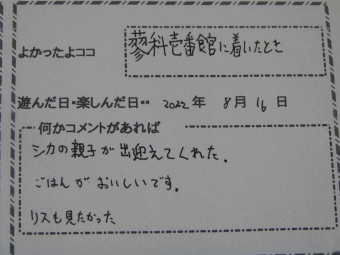 よかったよココ 蓼科壱番館に着いたとき
遊んだ日・楽しんだ日・・ 2022年 8月 16日
何かコメントがあれば
シカの親子が出迎えてくれた。
ごはんがおいしいです。
リスも見たかった